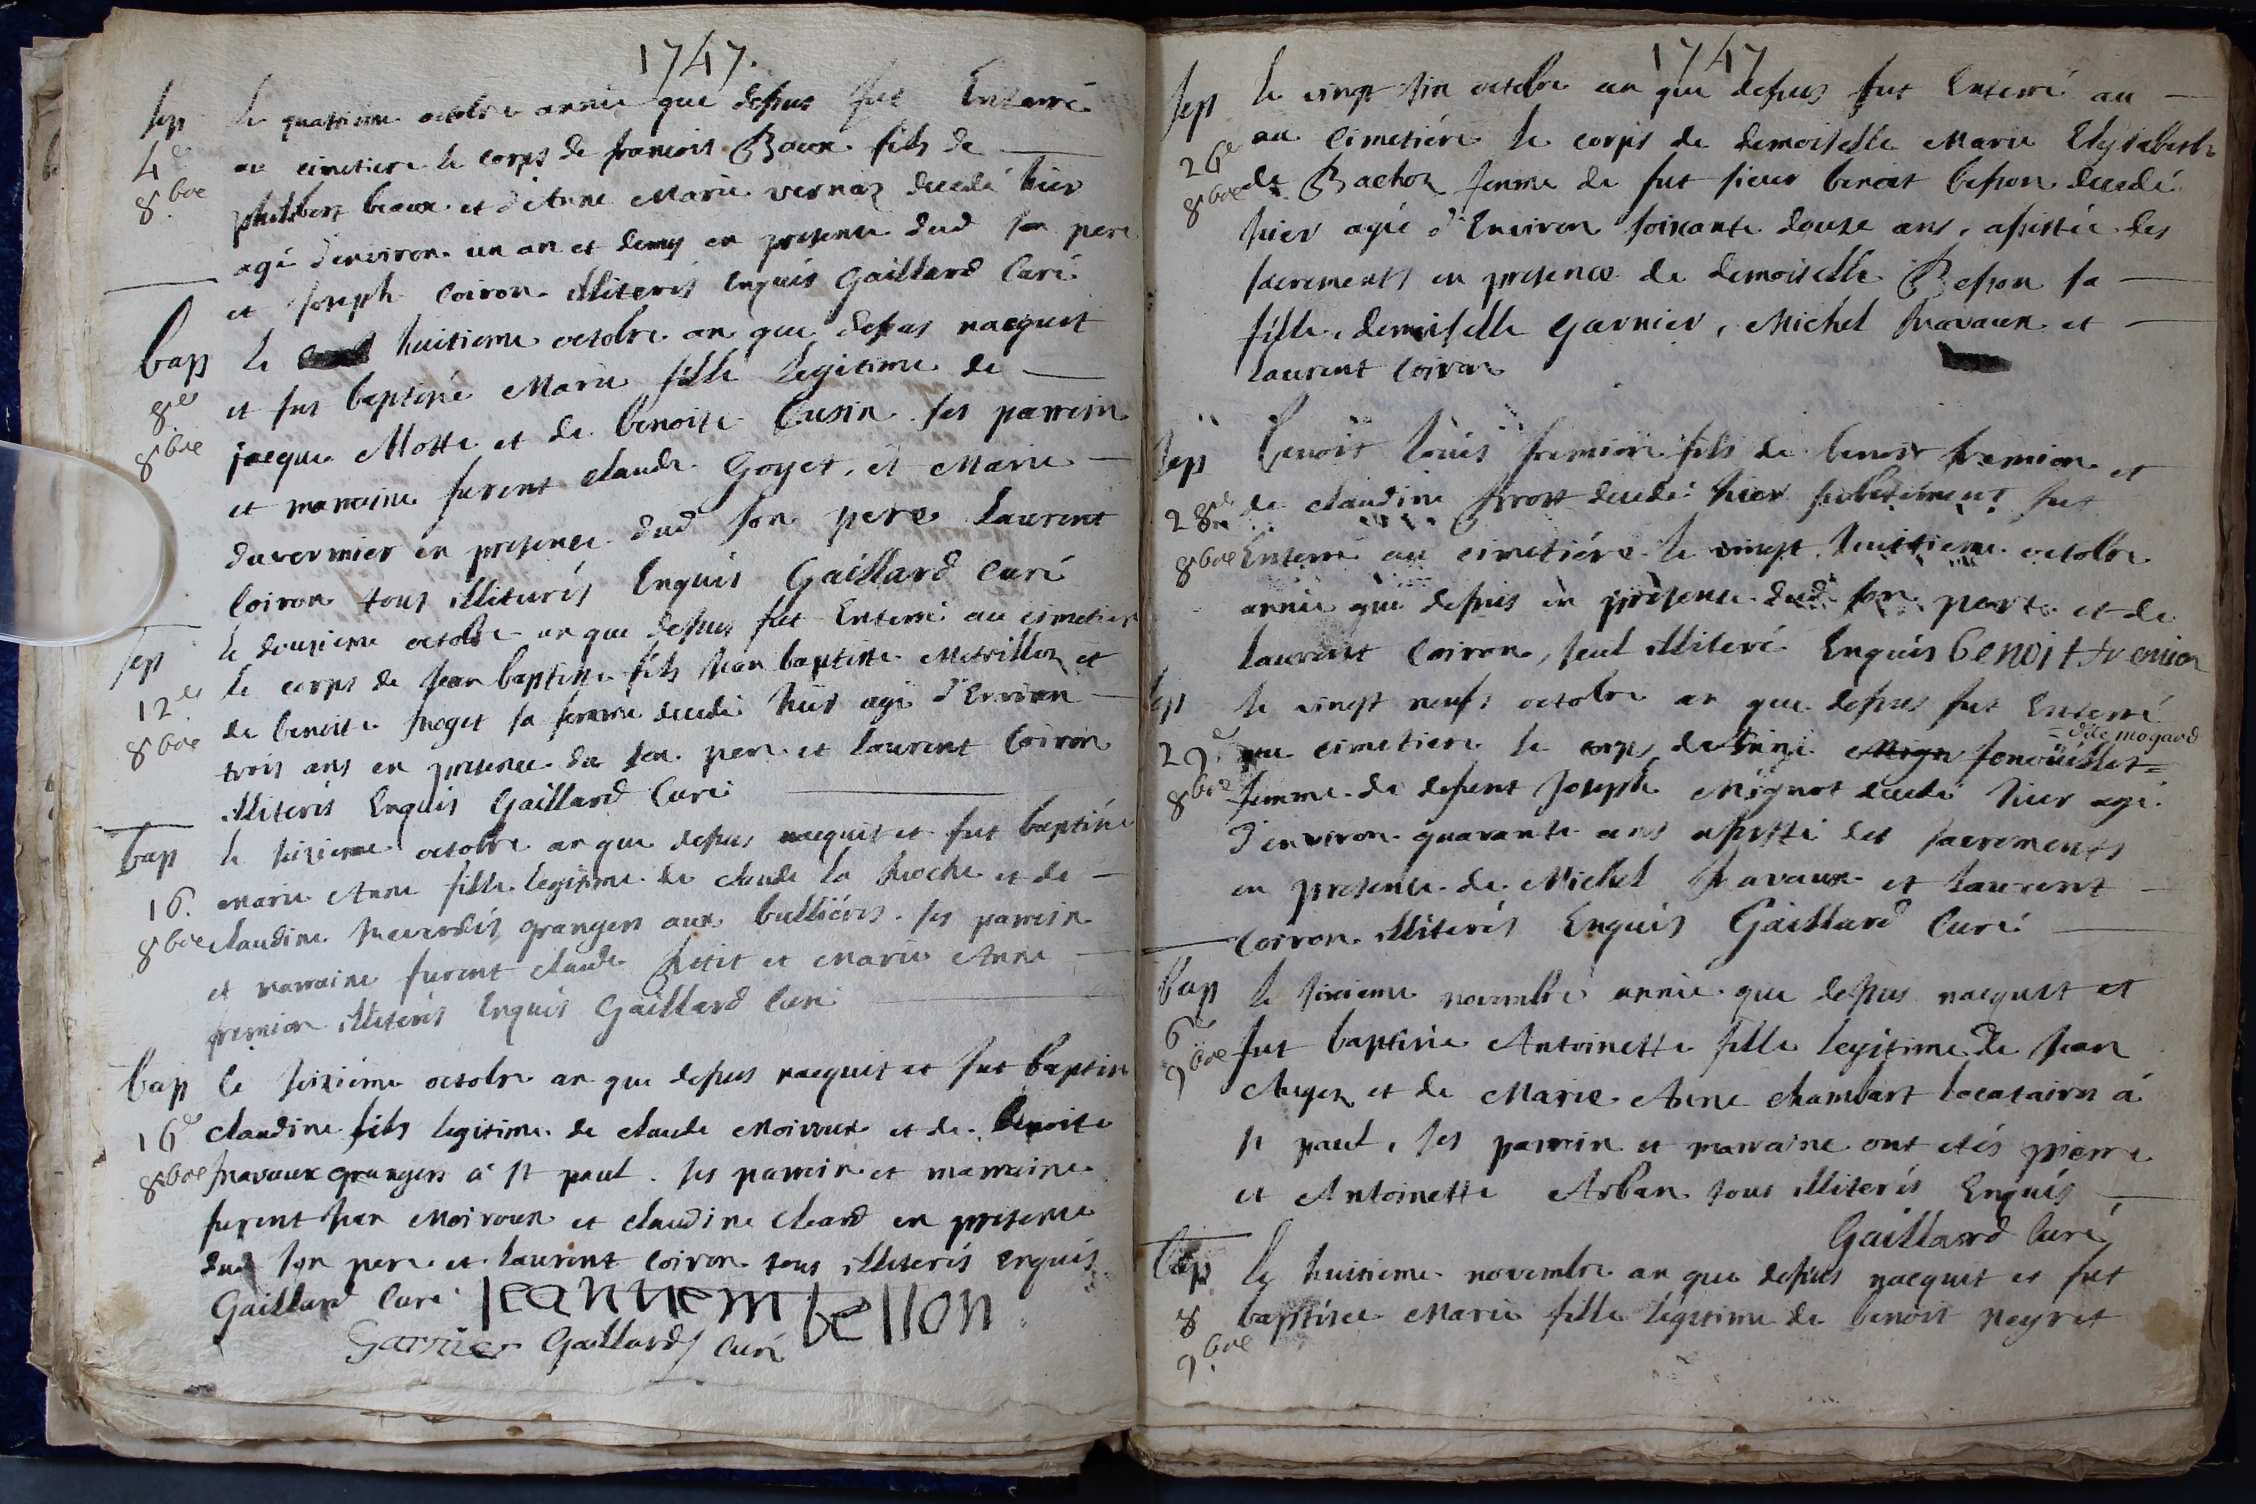 1747.
Sep le quatrieme octobre année que dessus fut Enterré
4e au cimetiere le corps de francois Baux fils de
8bre philibert beaux et d'Anne Marie vernaz decedé hier
agé d'environ un an et demy en presence dud son pere
et Joseph Coiron illiterés Enquis Gaillard Curé
bap le huitieme octobre an que dessus naequit
et fut baptisée Marie fille legitime de
8e jacque Motte et de benoite Cusin ses parrein
8bre et marraine furent claude Goyet, et Marie
duvernier en presence dud son pere Laurent
Coiron tous illiterés Enquis Gaillard Curé
Sep le douzieme octobre an que dessus fut Enterré au cimetier
12e le corps de Jean baptiste fils Jean baptiste Metrillon et
8bre de benoite sa femme decedé hier agé d'Environ
trois ans en presence du son pere et Laurent Coiron
illiterés Enquis Gaillard Curé
bap le seizieme octobre an que dessus naequit et fut baptisée
16. Marie Anne fille legitime de claude la Roche et de
8bre claudine grangers aux bullières. ses parrein
et marraine furent claude Petit et Marie Anne
fremion illiterés Enquis Gaillard Curé
bap le seizième octobre an que dessus naequit et fut baptisé
16e claudine fils legitime de claude Moiroux et de benoite
8bre travaux grangers à St paul. ses parrein et marraine
furent Jean Moiroux et claudine cleard en presence
dud son pere et Laurent Coiron tous illiterés enquis
Gaillard Curé Jeannem bellon
Garnier Gaillard Curé
1747
Sep le vingt six octobre an que dessus fut Enterré au
26e au Cimetiére le corps de demoiselle Marie Elysabeth
8bre de Bachoz femme de fut sieur benoit besson decedé
hier agée d'Environ soixante douze ans, assistée des
sacrements en presence de demoiselle Besson sa
fille, demoiselle Garnier, Michel travaux et
Laurent Coiron
Sep Benoit Louis fremion fils de benoit fremion et
28e de claudine decedé hier subitement fut
8bre Enterré au cimetiére le vingt huittieme octobre
année que dessus en presence dud son pere et de
Laurent Coiron, seul illiteré Enquis benoit fremion
Sep le vingt neufs octobre an que dessus fut Enterré
= dite mogard
29e au cimetiere le corps de fenoüillet =
8bre femme de defunt Joseph Mignot decedé hier agé
d'environ quarante ans assisté des sacrements
en presence de Michel travaux et Laurent
Coiron illiterés Enquis Gaillard Curé
bap le sixieme novembre année que dessus naequit et
6e fut baptisée Antoinette fille legitime de Jean
9bre Auger et de Marie Anne chambart locataires à
St paul, ses parrein et marraine ont etés pierre
et Antoinette Arban tous illiterés Enquis
Gaillard Curé
bap le huitieme novembre an que dessus naequit et fut
8 baptisée Marie fille légitime de benoit Neyret
9bre